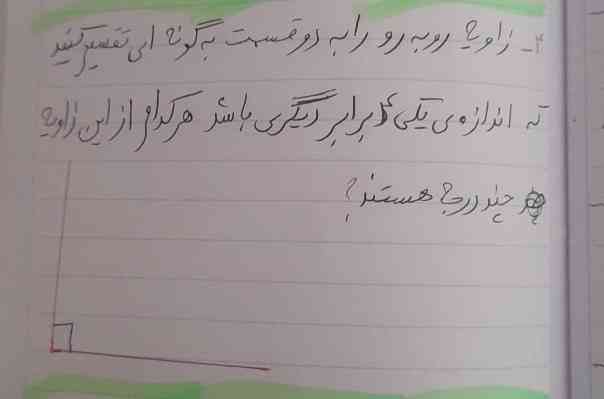 ۴- زاویه روبه رو را به دو قسمت به گونه ای تقسیم کنید
که اندازه ی یکی ۴ برابر دیگری باشد هر کدام از این زاویه
چند درجه هستند؟